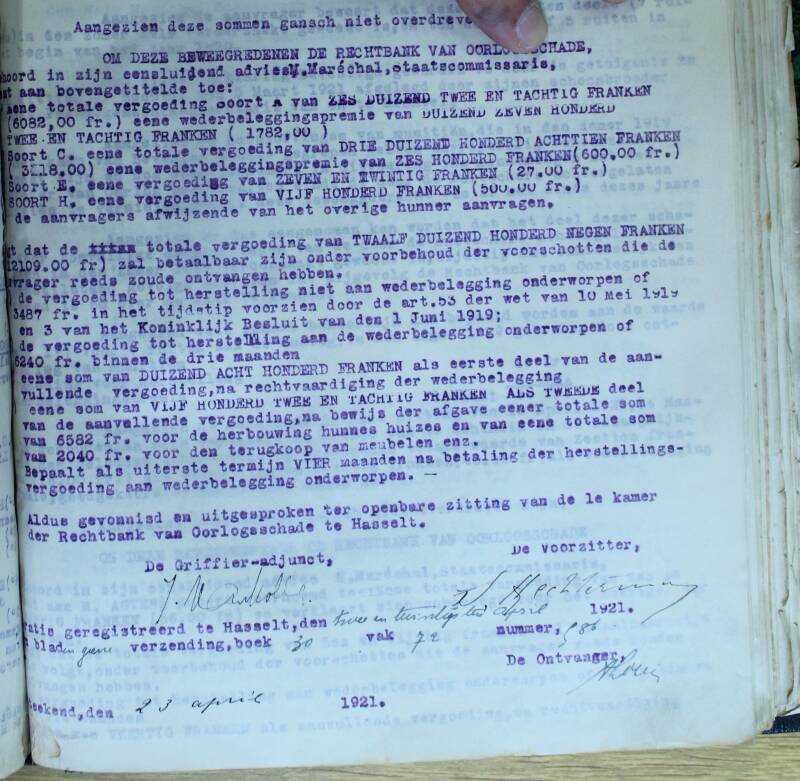 Aangezien deze sommen gansch niet overdreve
OM DEZE BEWEEGREDENEN DE RECHTBANK VAN OORLOGSSCHADE,
hoord in zijn eensluidend advies M. Maréchal, staatscommissaris,
nt aan bovengetitelde toe:
eene totale vergoeding Soort A van ZES DUIZEND TWEE EN TACHTIG FRANKEN
(6082,00 fr.) eene wederbeleggingspremie van DUIZEND ZEVEN HONDERD
TWEE EN TACHTIG FRANKEN ( 1782,00 )
Soort C. eene totale vergoeding van DRIE DUIZEND HONDERD ACHTTIEN FRANKEN
( 3118.00) eene wederbeleggingspremie van ZES HONDERD FRANKEN(600.00 fr.)
Soort E. eene vergoeding van ZEVEN EN TWINTIG FRANKEN (27.00 fr.)
SOORT H. eene vergoeding van VIJF HONDERD FRANKEN (500.00 fr.)
de aanvragers afwijzende van het overige hunner aanvragen.
gt dat de totale vergoeding van TWAALF DUIZEND HONDERD NEGEN FRANKEN
12109.00 fr) zal betaalbaar zijn onder voorbehoud der voorschotten die de
vrager reeds zoude ontvangen hebben.
de vergoeding tot herstelling niet aan wederbelegging onderworpen of
3487 fr. in het tijdstip voorzien door de art.53 der wet van 10 Mei 1919
en 3 van het Koninklijk Besluit van den 1 Juni 1919;
de vergoeding tot herstelling aan de wederbelegging onderworpen of
6240 fr. binnen de drie maanden
eene som van DUIZEND ACHT HONDERD FRANKEN als eerste deel van de aan-
vullende vergoeding,na rechtvaardiging der wederbelegging
) eene som van VIJF HONDERD TWEE EN TACHTIG FRANKEN ALS TWEEDE deel
van de aanvullende vergoeding,na bewijs der afgave eener totale som
van 6582 fr. voor de herbouwing hunnes huizes en van eene totale som
van 2040 fr. voor den terugkoop van meubelen enz.
Bepaalt als uiterste termijn VIER maanden na betaling der herstellings-
vergoeding aan wederbelegging onderworpen. —
Aldus gevonnisd en uitgesproken ter openbare zitting van de 1e kamer
der Rechtbank van Oorlogsschade te Hasselt.
De Griffier-adjunct, De Voorzitter,
atis geregistreerd te Hasselt,den twee en twintigsten april 1921.
blad en geene verzending,boek 30 vak 72 nummer, 986
De Ontvanger,
eekend,den 23 april 1921.